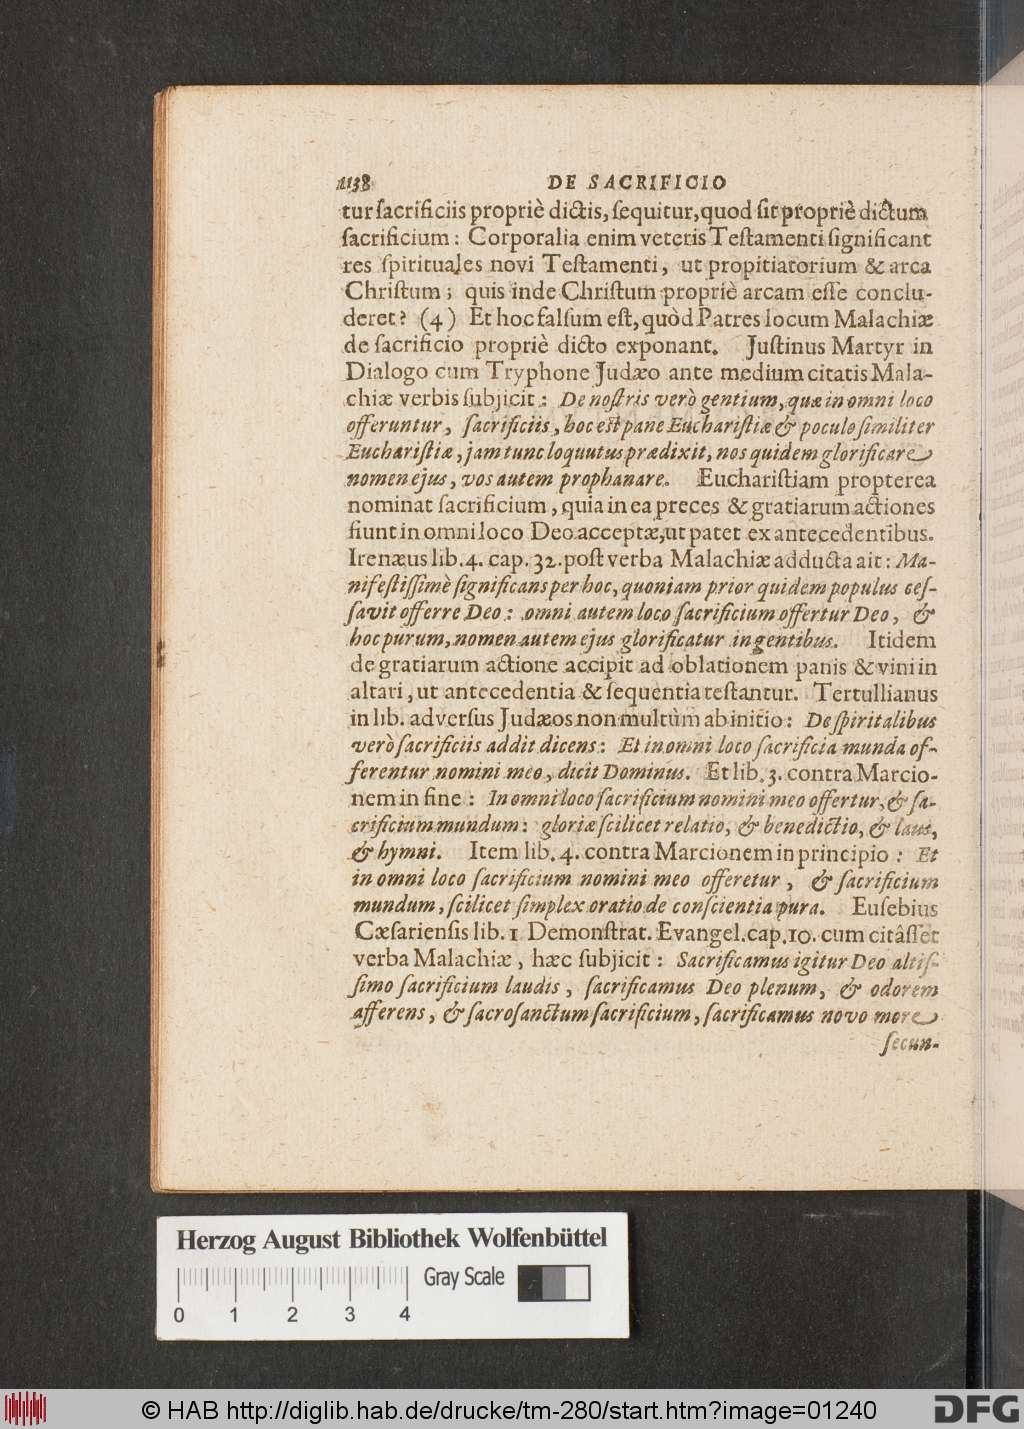 1138 DE SACRIFICIO
tur ſacrificiis propriè dictis, ſequitur, quod ſit propriè dictum
ſacrificium: Corporalia enim veteris Teſtamenti ſignificant
res ſpirituales novi Teſtamenti, ut propitiatorium & arca
Chriſtum; quis inde Chriſtum propriè arcam eſſe conclu-
deret? (4) Et hoc falſum eſt, quòd Patres locum Malachiæ
de ſacrificio propriè dicto exponant. Juſtinus Martyr in
Dialogo cum Tryphone Judæo ante medium citatis Mala-
chiæ verbis ſubjicit: De noſtris verò gentium, quæ in omni loco
offeruntur, ſacrificiis, hoc eſt pane Euchariſtiæ & poculo ſimiliter
Euchariſtiæ, jam tunc loquutus prædixit, nos quidem glorificare
nomen ejus, vos autem prophanare. Euchariſtiam propterea
nominat ſacrificium, quia in ea preces & gratiarum actiones
fiunt in omni loco Deo acceptæ, ut patet ex antecedentibus.
Irenæus lib. 4. cap. 32. poſt verba Malachiæ adducta ait: Ma-
nifeſtiſſimè ſignificans per hoc, quoniam prior quidem populus ceſ-
ſavit offerre Deo: omni autem loco ſacrificium offertur Deo, &
hoc purum, nomen autem ejus glorificatur in gentibus. Itidem
de gratiarum actione accipit ad oblationem panis & vini in
altari, ut antecedentia & ſequentia teſtantur. Tertullianus
in lib. adverſus Judæos non multùm ab initio: De ſpiritalibus
verò ſacrificiis addit dicens: Et in omni loco ſacrificia munda of-
ferentur nomini meo, dicit Dominus. Et lib. 3. contra Marcio-
nem in fine: In omni loco ſacrificium nomini meo offertur, & ſa-
crificium mundum: gloriæ ſcilicet relatio, & benedictio, & laus,
& hymni. Item lib. 4. contra Marcionem in principio: Et
in omni loco ſacrificium nomini meo offeretur, & ſacrificium
mundum, ſcilicet ſimplex oratio de conſcientia pura. Euſebius
Cæſarienſis lib. 1 Demonſtrat. Evangel. cap. 10. cum citâſſet
verba Malachiæ, hæc ſubjicit: Sacrificamus igitur Deo altiſ-
ſimo ſacrificium laudis, ſacrificamus Deo plenum, & odorem
afferens, & ſacroſanctum ſacrificium, ſacrificamus novo more
ſecun-
Herzog August Bibliothek Wolfenbüttel
Gray Scale
0 1 2 3 4
© HAB http://diglib.hab.de/drucke/tm-280/start.htm?image=01240
DFG